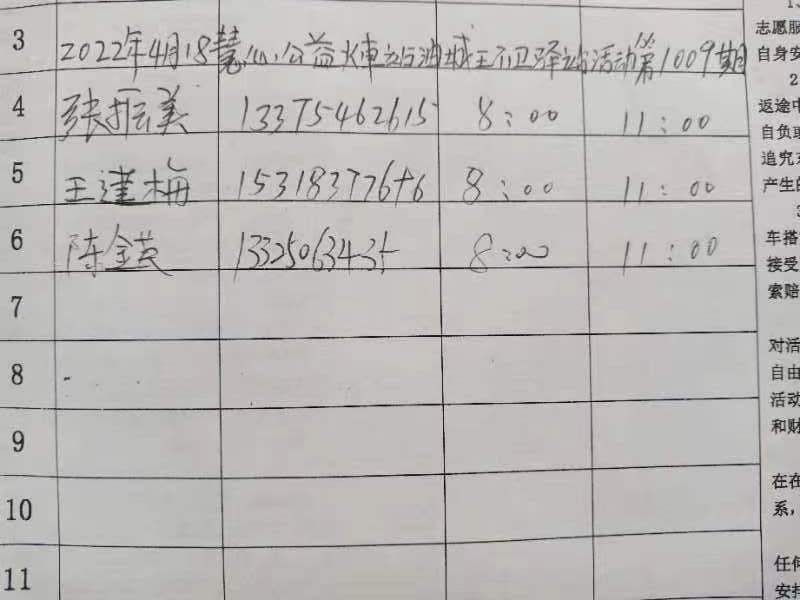 3 2022年4月18慧心公益火车站油城王不卫驿站活动第1009期
4 张振美 13375462615 8:00 11:00
5 王建梅 15318377676 8:00 11:00
6 陈金英 8:00 11:00
7
8
9
10
11
志愿服
自身安
2
返途中
自负或
追究
产生的
3
车搭
接受
索赔
对活
自由
活动
和财
在在
系，
任何
安排